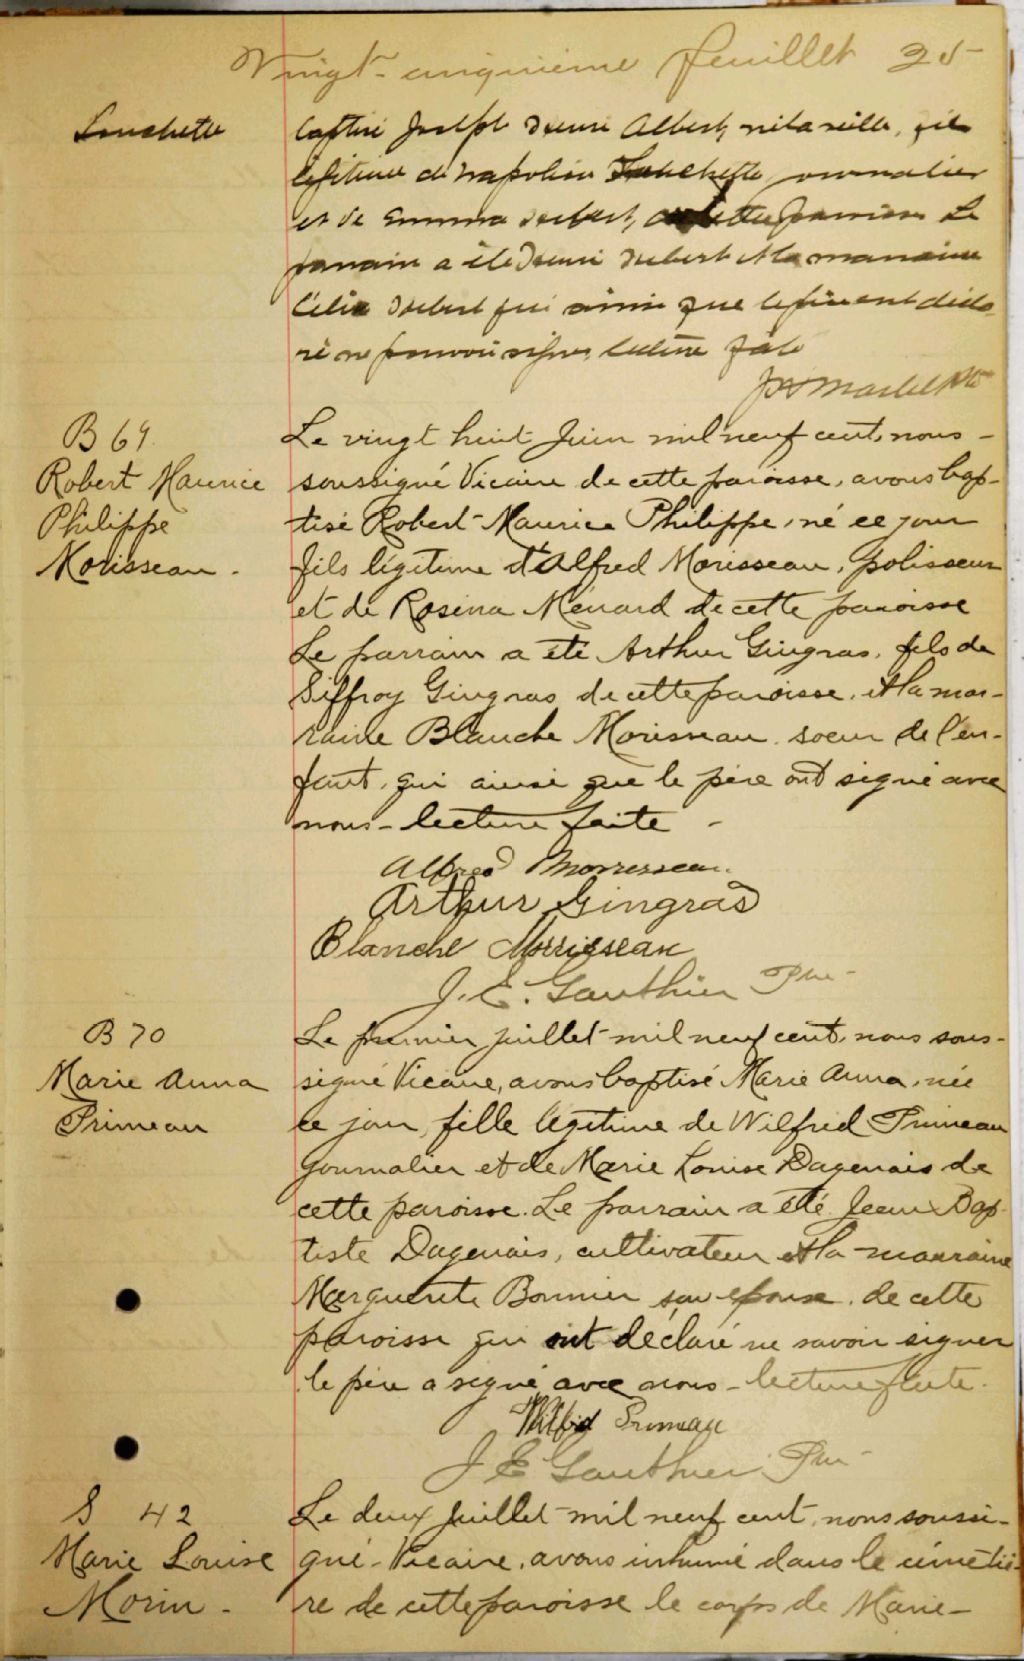 Vingt-cinquième feuillet 25
Louchette
baptisé Joseph Henri Albert, né la veille, fils
légitime de Napoléon Louchette, journalier
et de Emma Hebert, de cette paroisse Le
parrain a été Henri Hebert et la marraine
Célia Hebert qui ainsi que le père ont décla-
ré ne pouvoir signer, lecture faite
B 69.
Robert Maurice
Philippe
Morisseau.
Le vingt huit Juin mil neuf cent, nous -
soussigné Vicaire de cette paroisse, avons bap-
tisé Robert-Maurice Philippe, né ce jour
fils légitime d'Alfred Morisseau, polisseur
et de Rosina Ménard de cette paroisse
Le parrain a été Arthur Gingras, fils de
Siffroy Gingras de cette paroisse, et la mar-
raine Blanche Morisseau soeur de l'en-
fant, qui ainsi que le père ont signé avec
nous - lecture faite -
Alfred Morrisseau.
Arthur Gingras
Blanche Morrisseau
J. E. Gauthier Ptre
B 70
Marie Anna
Primeau
Le premier juillet mil neuf cent, nous sous-
signé Vicaire, avons baptisé Marie Anna, née
ce jour, fille légitime de Wilfred Primeau
journalier et de Marie Louise Dagenais de
cette paroisse. Le parrain a été Jean Bap-
tiste Dagenais, cultivateur et la marraine
Marguerite Bonnier son épouse, de cette
paroisse qui ont déclaré ne savoir signer
le père a signé avec nous - lecture faite.
Wilfrid Primeau
J E Gauthier Ptre
S 42
Marie Louise
Morin -
Le deux Juillet mil neuf cent, nous soussi-
gné - Vicaire, avons inhumé dans le cimetiè-
re de cette paroisse le corps de Marie-